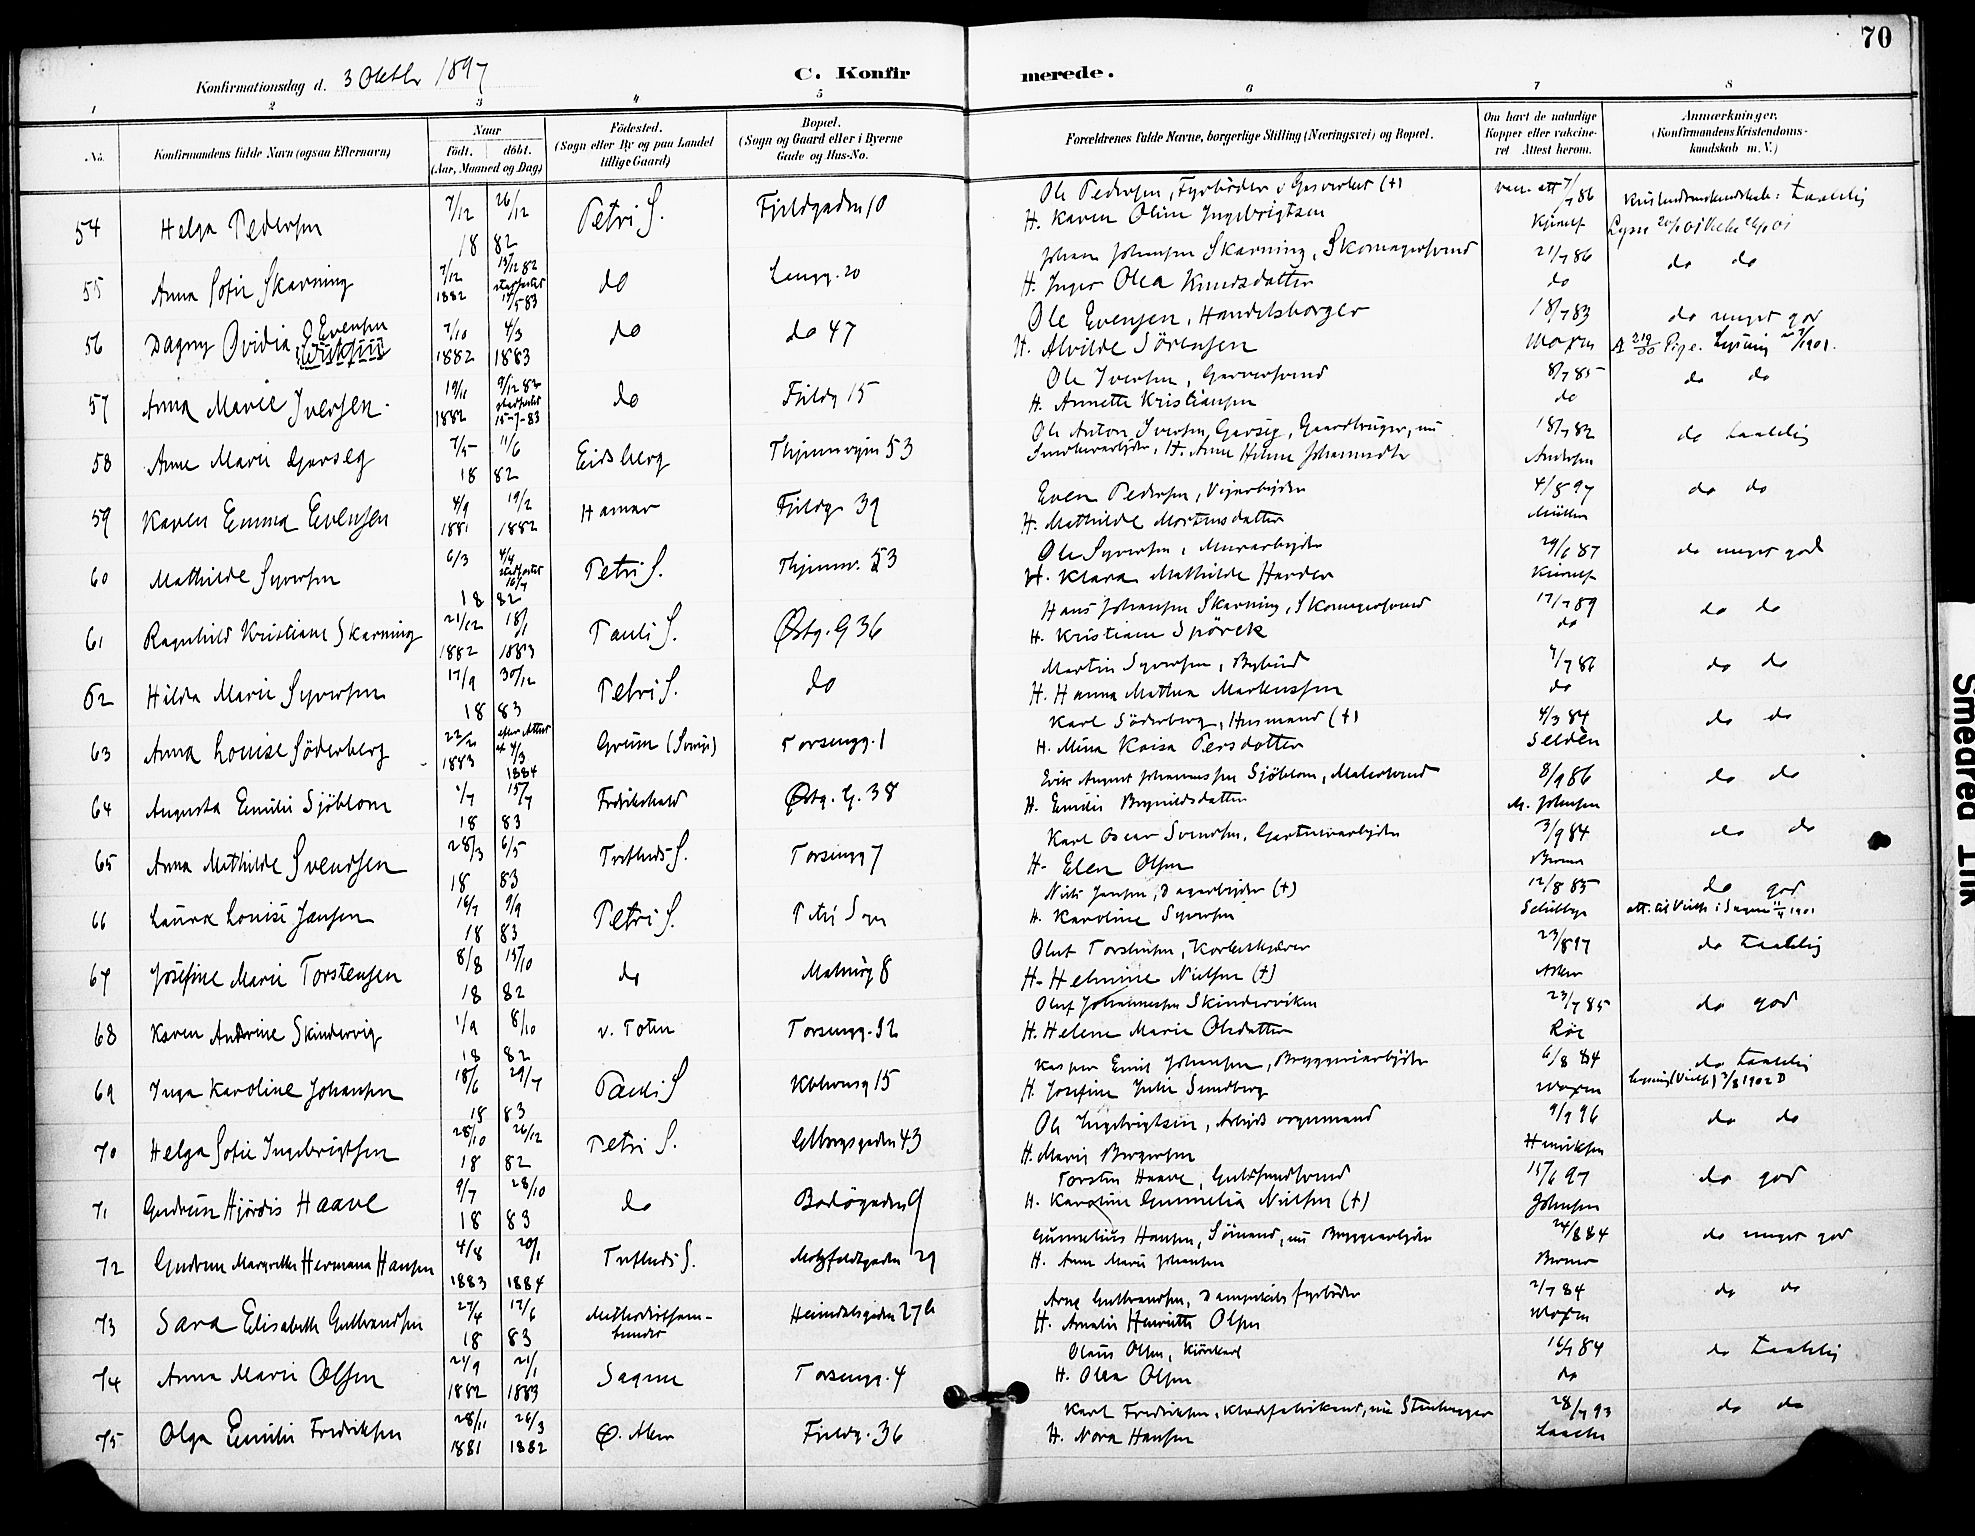 70
Konfirmationsdag d. 3 Oktbr 1897
C. Konfirmerede.
1 2 3 4 5 6 7 8
No.
Konfirmandens fulde Navn (ogsaa Efternavn)
Naar
født. døbt.
(Aar, Maaned og Dag)
Fødested.
(Sogn eller By og paa Landet
tillige Gaard)
Bopæl.
(Sogn og Gaard eller i Byerne
Gade og Hus-No.
Forældrenes fulde Navne, borgerlige Stilling (Næringsvei) og Bopæl.
Om havt de naturlige
Kopper eller vakcine-
ret Attest herom.
Anmærkninger,
(Konfirmandens Kristendoms-
kundskab m. V.)
54 Helga Pedersen 7/12 26/12 18 82 Petri S. Fjeldgaden 10
Ole Pedersen, Fyrbøder v Gasverket (+)
H. Karen Oline Ingebrigtsen
vacc. att 7/7 86 Kjerulf
Kristendomskundskab: taalelig
55 Anna Sofie Skarning 7/12 1882 13/12 82 stadfæstet 13/5 83 do Langg. 20
Johan Johansen Skarning, Skomagersvend
H. Inger Olea Knudsdatter
21/7 86 do
do do
56 Dagny Ovidia Evensen 7/10 1882 4/3 1883 do do 47
Ole Evensen, Handelsborger
H. Alvilde Sörensen
18/7 83
do meget god
57 Anna Marie Iversen 19/11 1882 9/12 82 stadfæstet 15-7-83 do Fjeldg 15
Ole Iversen, Garversvend
H. Annette Kristiansen
8/7 85 do
do do
58 Anne Marie Garseg 7/5 11/6 18 82 Eidsberg 53
Ole Anton Iversen Garseg, Gaardbruger, nu
H. Anne Helene Johannesdtr
18/7 82 Andersen
do taalelig
59 Karen Emma Evensen 4/9 1881 19/2 1882 Hamar Fjeldg. 39
Even Pedersen, Veiarbeider
H. Mathilde Mortensdatter
4/5 97 Müller
do do
60 Mathilde Syversen 6/3 4/4 stadfæstet 16/7 18 82 Petri S. 53
Ole Syversen, Murarbeider
H. Klara Mathilde Harder
29/6 87 Kjerulf
do meget god
61 Ragnhild Kristiane Skarning 21/12 1882 18/1 1883 Pauli S. Østg. G 36
Hans Johansen Skarning, Skomagersvend
H. Kristiane Spörck
17/7 89 do
do do
62 Hilda Marie Syversen 17/9 30/12 18 83 Petri S. do
Martin Syversen, Bybud
H. Hanna Mathea Markussen
7/7 86 do
do do
63 Anna Louise Söderberg 1883 efter Attest 4/3 1884 Grum (Sverige) Torsengg. 1
Karl Söderberg, Husmand (+)
H. Mina Kaisa Persdotter
4/3 84 Seldén
do do
64 Augusta Emilie Sjöblom 1/7 15/7 18 83 Fredrikshald Østg. G. 38
Erik August Johannessen Sjöblom, Malersvend
H. Emilie Brynildsdatter
8/9 86 M. Johnsen
do do
65 Anna Mathilde Svendsen 28/3 6/5 18 83 Trefold. S. Torsengg 7
Karl Oscar Svendsen, Gartneriarbeider
H. Elen Olsen
3/9 84
do do
66 Laura Louise Jansen 16/7 9/9 18 83 Petri S. Petri Sogn
Niels Jansen, Dagarbeider (+)
H. Karoline Syversen
12/8 85
do god
67 Josefine Marie Torstensen 8/8 15/10 18 82 do Malmøg 8
Oluf Torstensen, Korkeskjærer
H. Helmine Nielsen (+)
23/8 97
do taalelig
68 Karen Andrine Skindervig 1/9 8/10 18 82 v. Toten Torsengg. 32
Oluf Johannessen Skinderviken
H. Helene Marie Olsdatter
23/7 85
do god
69 Inga Karoline Johansen 18/6 29/7 18 83 Pauli S Kbhvnsg 15
Kasper Emil Johansen, Bryggeriarbeider
H. Josefine Julie Sundberg
6/8 84
do taalelig
70 Helga Sofie Ingebrigtsen 28/10 26/12 18 82 Petri S. Gøteborgsgaden 43
Ole Ingebrigtsen, Arbeidsvognmand
H. Marie Borgersen
9/9 96 Henriksen
do do
71 Gudrun Hjördis Haave 9/7 28/10 18 83 do Bodøgaden 9
Torsten Haave, Guldsmedsvend
H. Karoline Gunnelia Nielsen (+)
15/6 97 Johnsen
do god
72 Gudrun Margrethe Hermana Hansen 4/8 1883 20/1 1884 Trefold. S. Motzfeldtgaden 29
Gunnelius Hansen, Sömand, nu Bryggearbeider
H. Anne Marie Johansen
24/8 84
do meget god
73 Sara Elisabeth Gulbrandsen 27/4 17/6 18 83 Methodistsam- fundet Heimdalsgaden 27b
Arne Gulbrandsen, Dampskibsfyrbøder
H. Amalie Henriette Olsen
2/7 84
do do
74 Anna Marie Olsen 24/9 1882 21/1 1883 Sagene Torsengg. 4
Olaus Olsen, Kjørekarl
H. Olea Olsen
16/7 84 do
do taalelig
75 Olga Emilie Fredriksen 28/11 1881 26/3 1882 Ø. Aker Fjeldg. 36
Karl Fredriksen, nu Stenhugger
H. Nora Hansen
28/7 93
do do
Smeared Ink